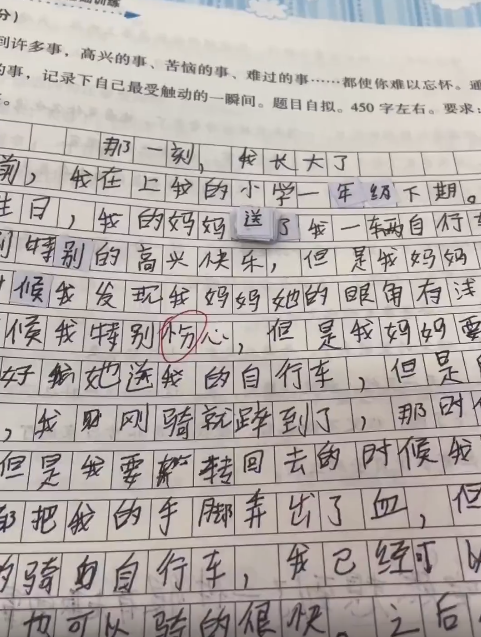 训练
分）
到许多事，高兴的事、苦恼的事、难过的事……都使你难以忘怀。通
的事，记录下自己最受触动的一瞬间。题目自拟。450字左右。要求：
。
那一刻，我长大了
前，我在上我的小学一年级下期。
生日，我的妈妈送了我一辆自行车
特别的高兴快乐，但是我妈妈
候我发现我妈妈她的眼角有浅
候我特别伤心，但是我妈妈要
好她送我的自行车，但是
，我刚骑就摔到了，那时
但是我要转回去的时候我
都把我的手脚弄出了血，但
的骑自行车，我已经可以
也可以骑的很快。之后